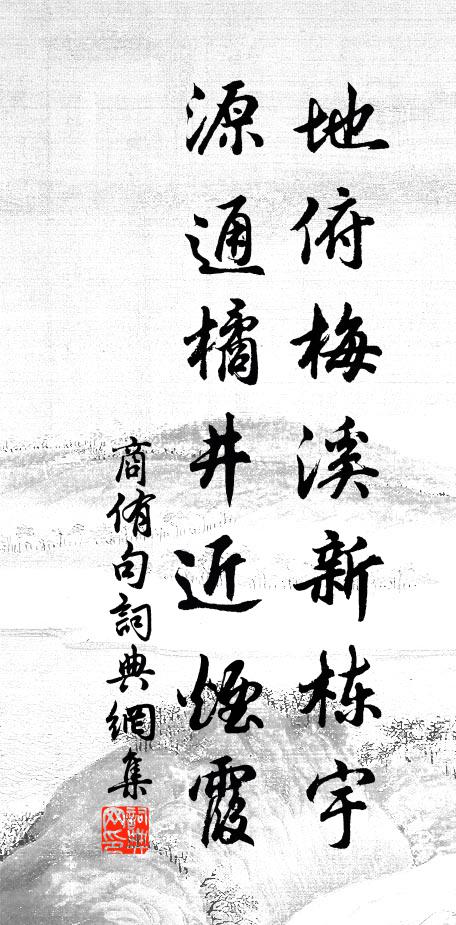 地俯梅溪新栋宇
源通橘井近烟霞
商侑句詞典網集